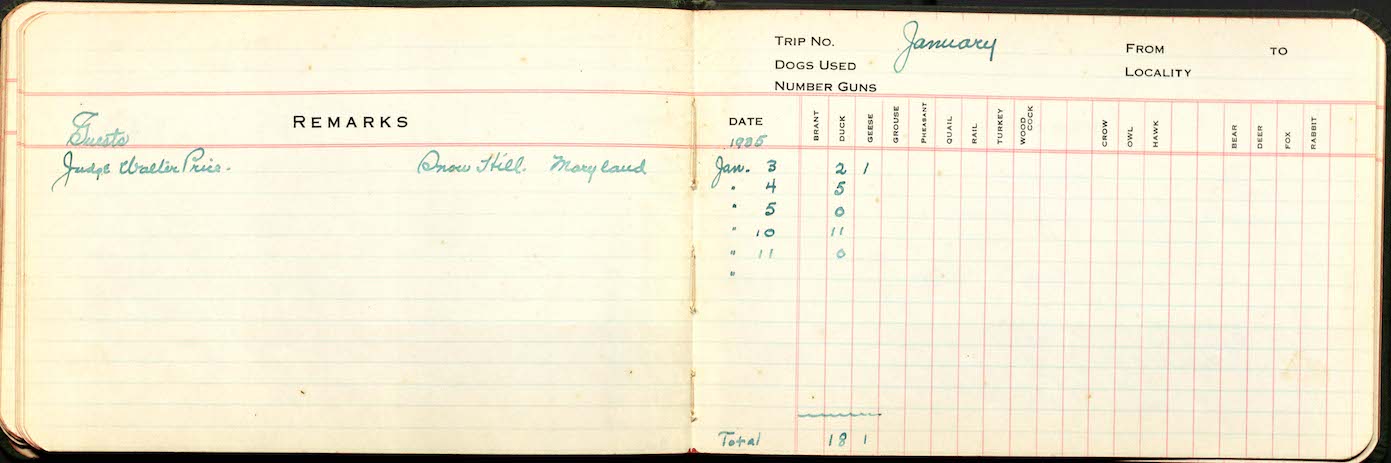 REMARKS
Guests
Judge Walter Price. Snow Hill. Maryland
TRIP NO. January FROM TO
DOGS USED LOCALITY
NUMBER GUNS
DATE BRANT DUCK GEESE GROUSE PHEASANT QUAIL RAIL TURKEY WOOD COCK CROW OWL HAWK BEAR DEER FOX RABBIT
1935
Jan. 3 2 1
" 4 5
" 5 0
" 10 11
" 11 0
"
Total 18 1